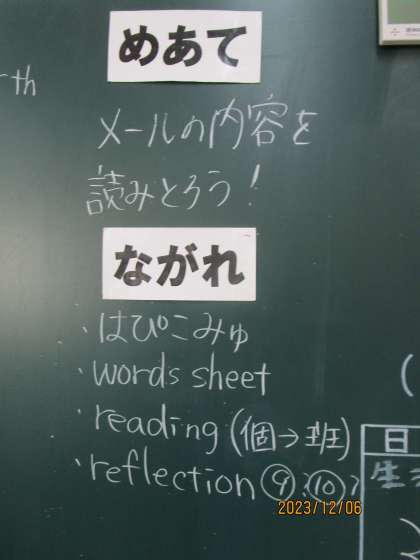 めあて
rth
メールの内容を
読みとろう!
ながれ
・はぴこみゅ
・words sheet
・reading (個→班)
・reflection ⑨,⑩,
日
生
2023/12/06